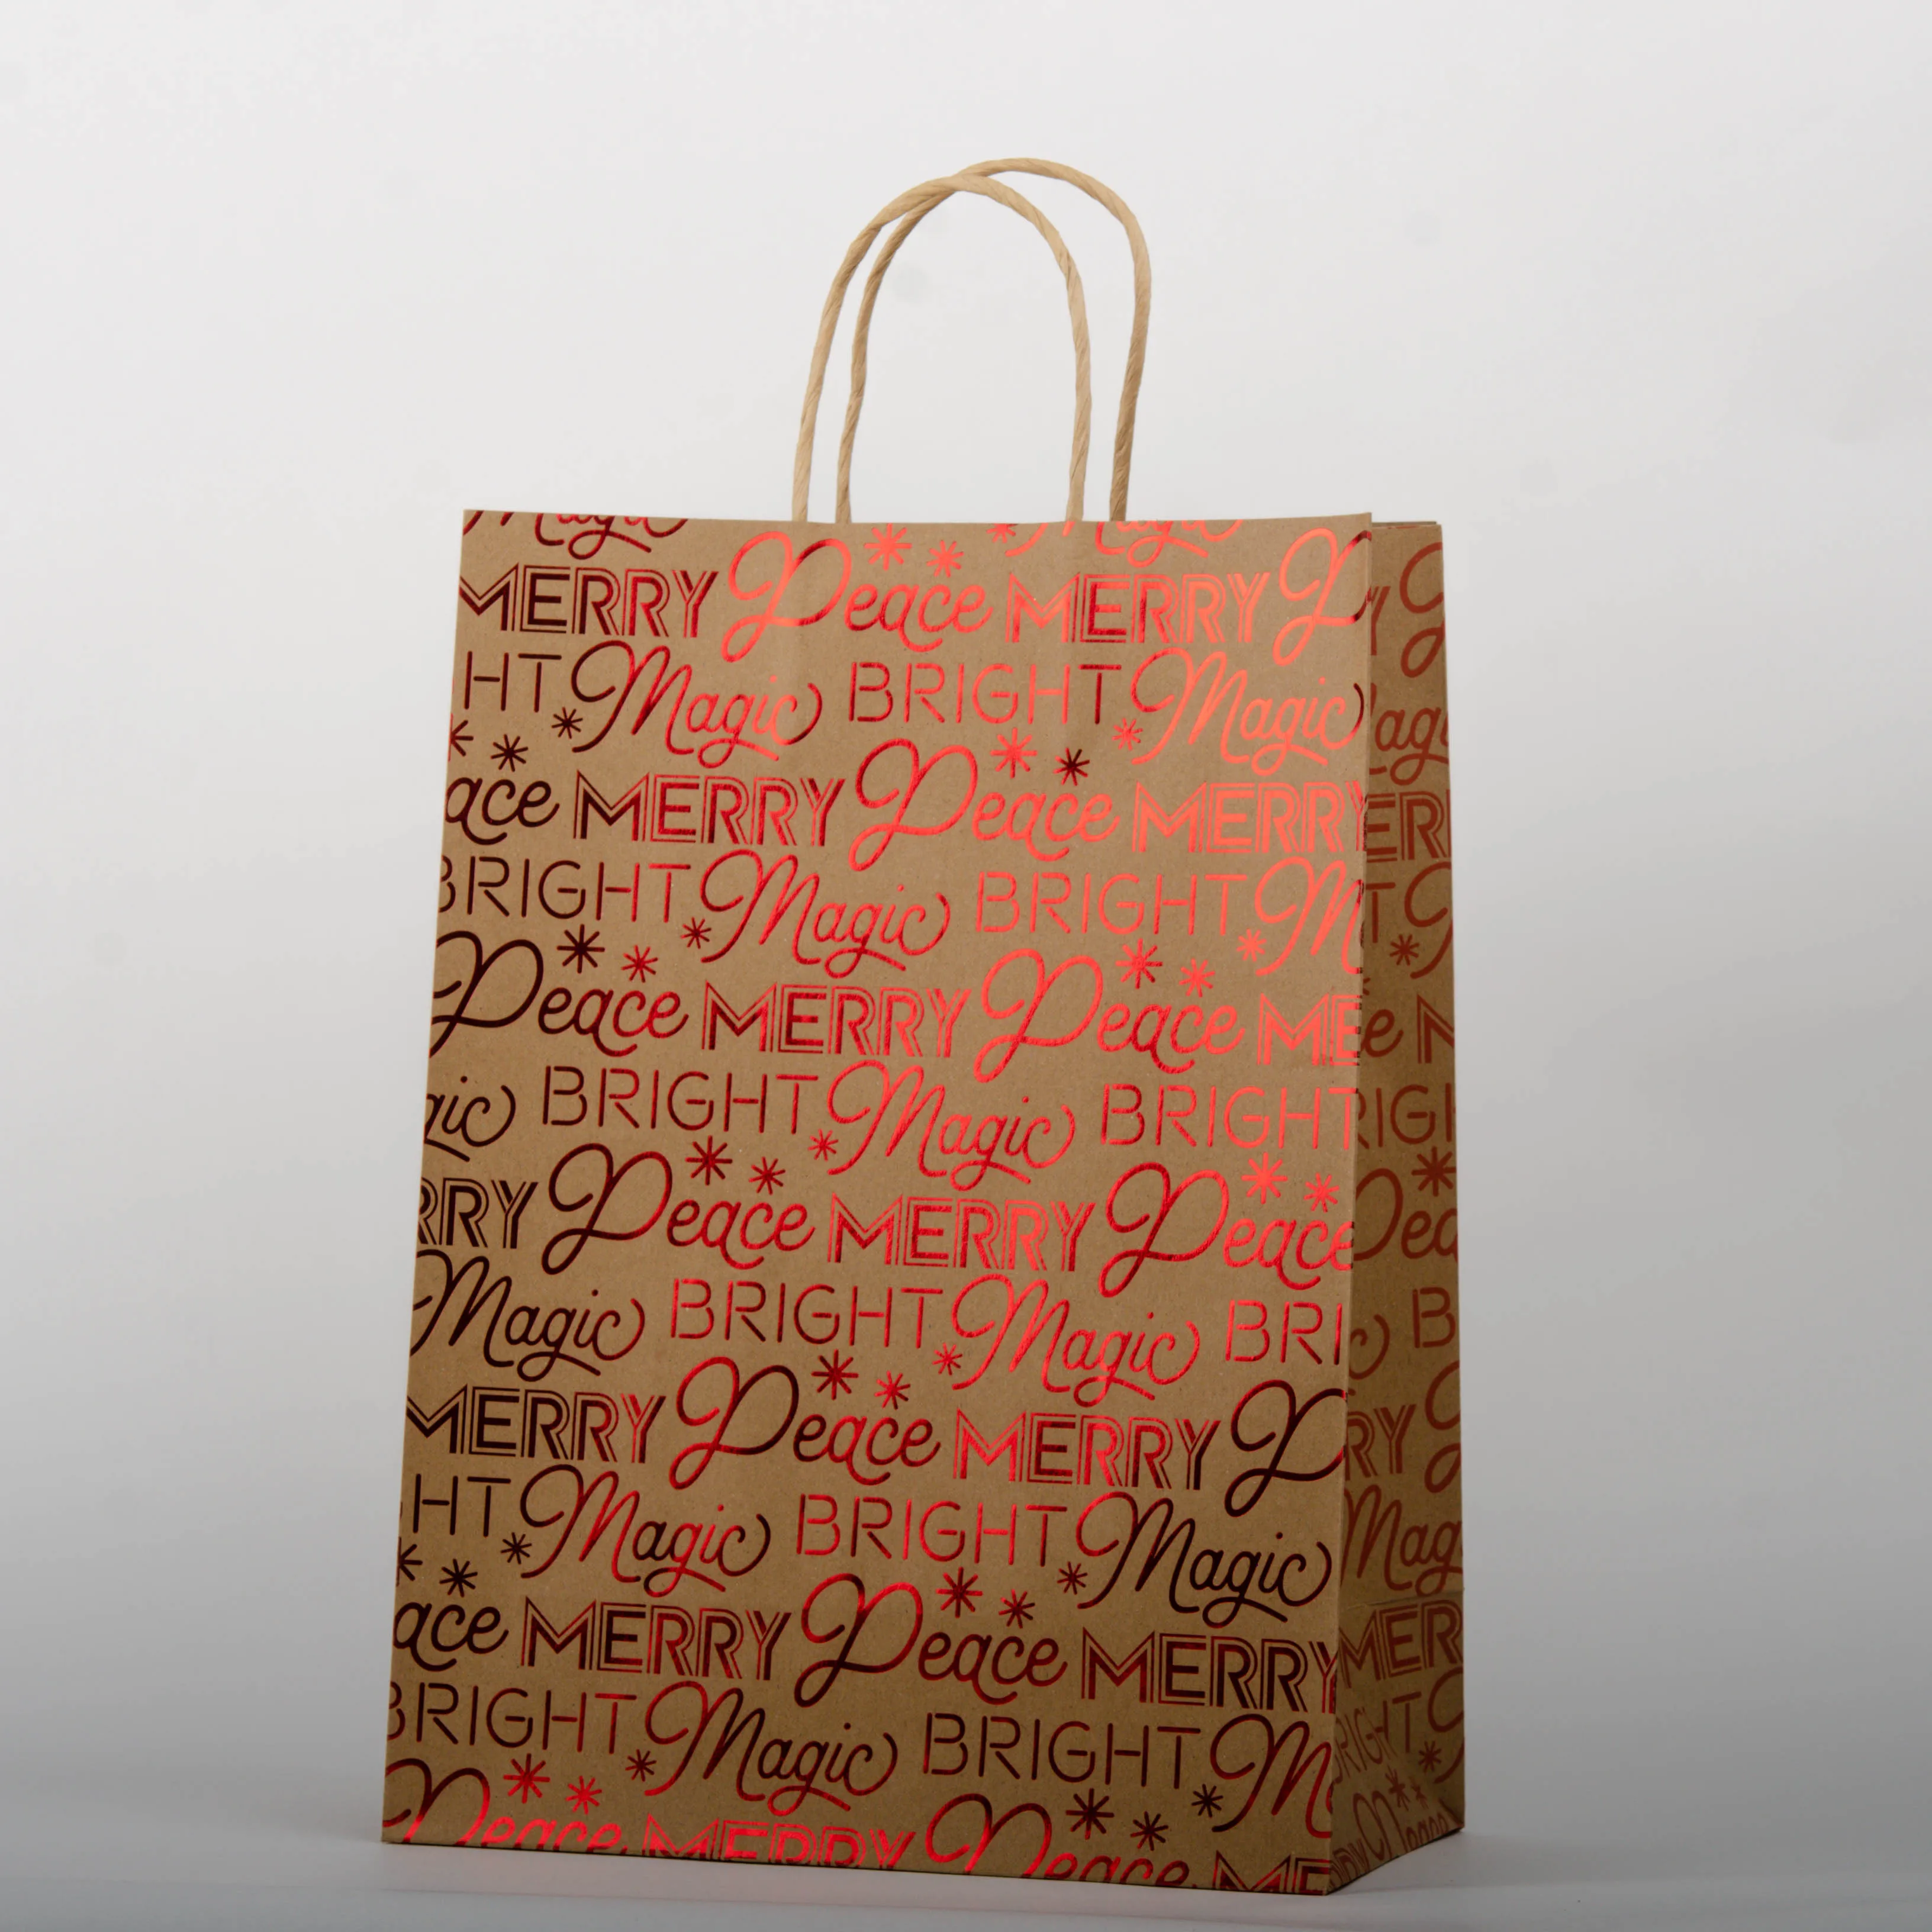 Magic Magic
MERRY Peace MERRY P
HT Magic BRIGHT Magic
ace MERRY Peace MERRY
BRIGHT Magic BRIGHT M
Peace MERRY Peace ME
gic BRIGHT Magic BRIGHT
RRY Peace MERRY Peace
Magic BRIGHT Magic BRI
MERRY Peace MERRY P
HT Magic BRIGHT Magic
ace MERRY Peace MERRY
BRIGHT Magic BRIGHT M
Peace MERRY Peace ME
agi
ER
T
e M
RIGH
Pea
c B
RY
Mag
MER
BRIGHT